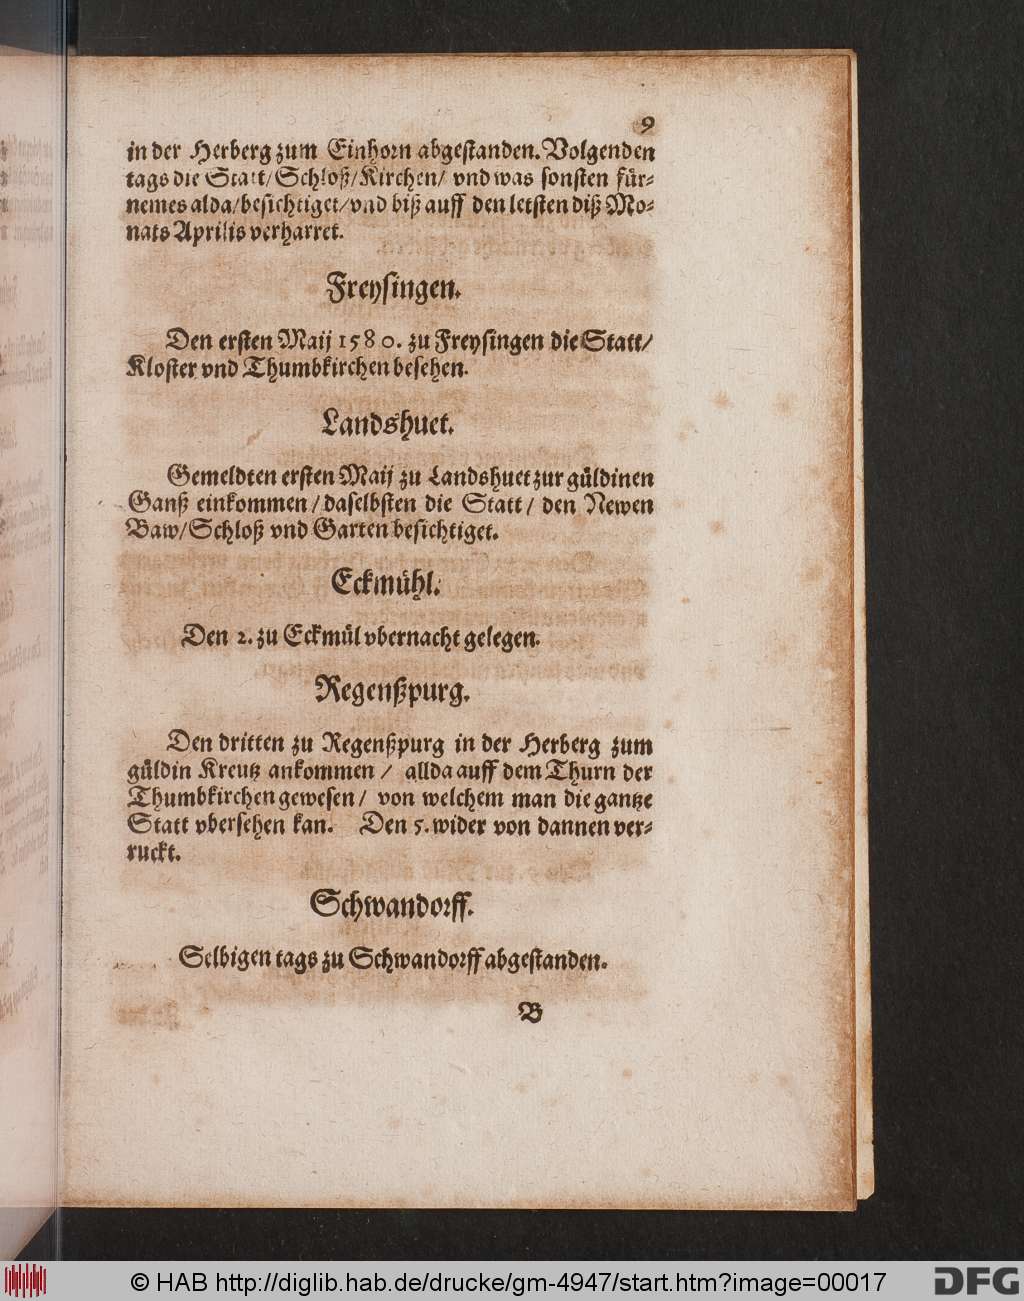 9
in der Herberg zum Einhorn abgestanden. Volgenden
tags die Statt/ Schloß/ Kirchen/ vnd was sonsten für-
nemes alda/ besichtiget/ vnd biß auff den letsten diß Mo-
nats Aprilis verharret.
Freysingen.
Den ersten Maij 1580. zu Freysingen die Statt/
Kloster vnd Thumbkirchen besehen.
Landshuet.
Gemeldten ersten Maij zu Landshuet zur güldinen
Ganß einkommen/ daselbsten die Statt/ den Newen
Baw/ Schloß vnd Garten besichtiget.
Eckmühl.
Den 2. zu Eckmül vbernacht gelegen.
Regenßpurg.
Den dritten zu Regenßpurg in der Herberg zum
güldin Kreutz ankommen/ allda auff dem Thurn der
Thumbkirchen gewesen/ von welchem man die gantze
Statt vbersehen kan. Den 5. wider von dannen ver-
ruckt.
Schwandorff.
Selbigen tags zu Schwandorff abgestanden.
B
© HAB http://diglib.hab.de/drucke/gm-4947/start.htm?image=00017
DFG